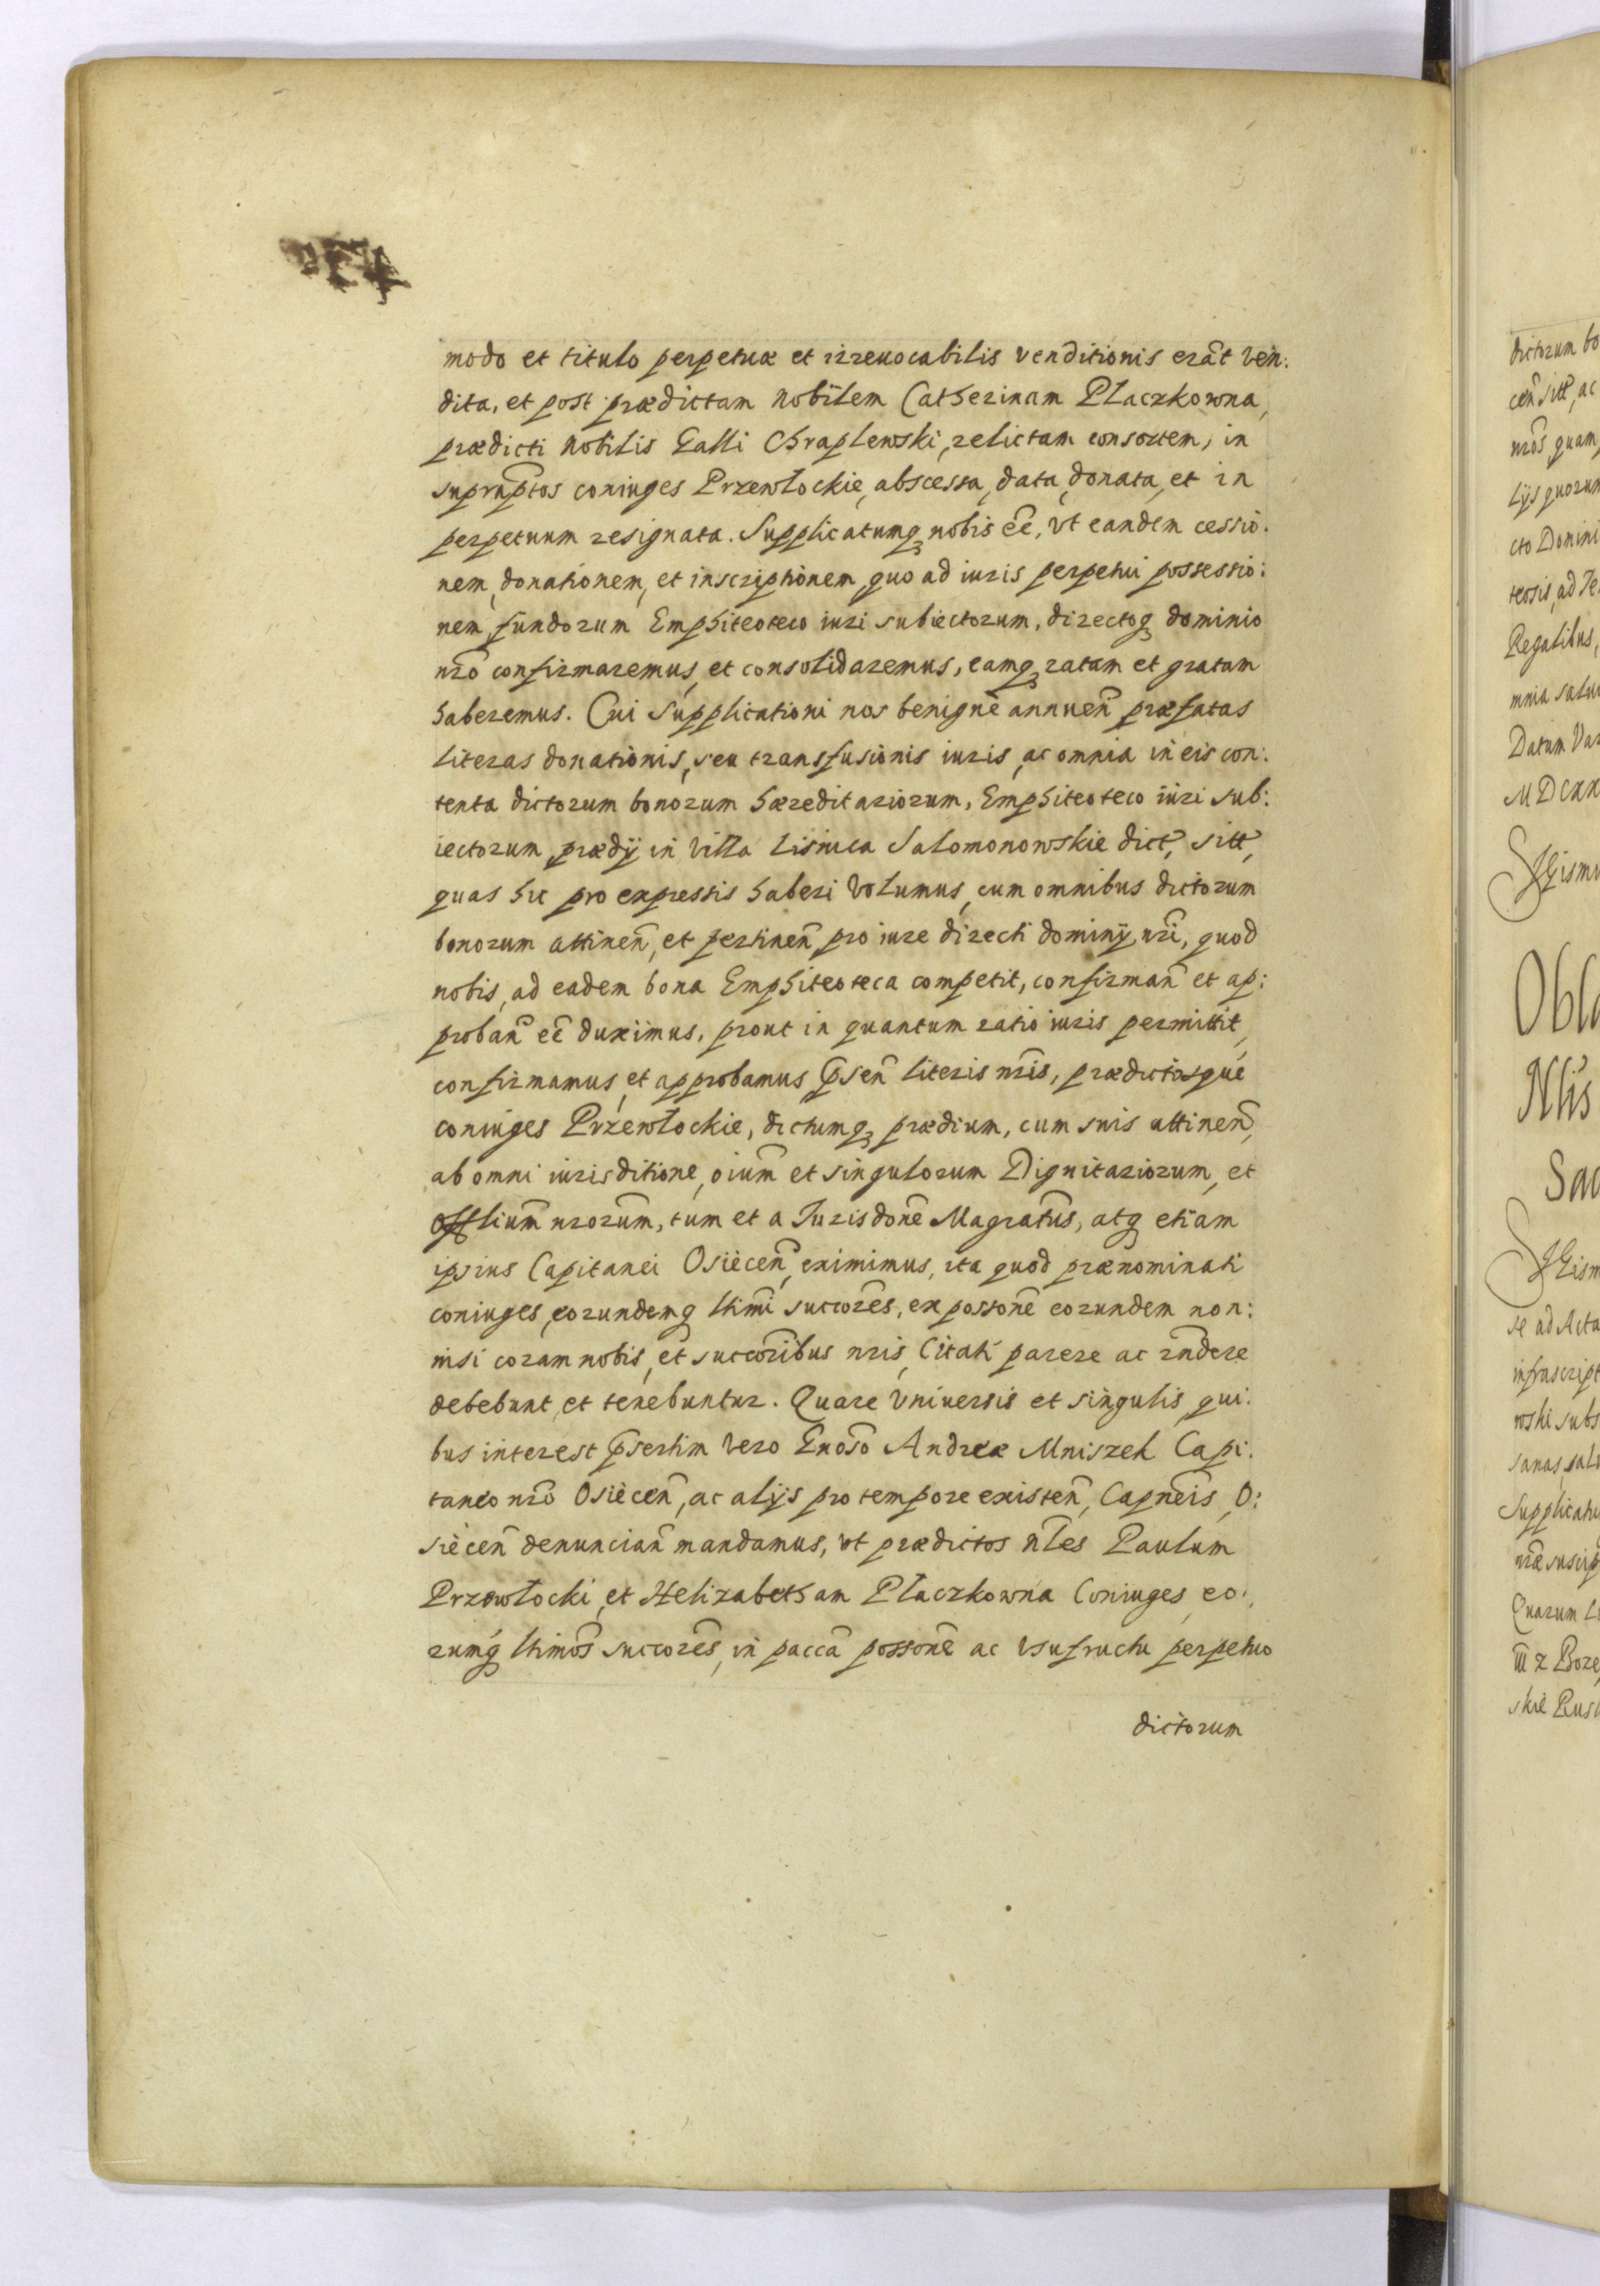 modo et titulo perpetuæ et irreuocabilis venditionis erāt ven:
dita, et post prædictam Nobilem Catherinam Płaczkowna,
prædicti Nobilis Galli Chraplewski, relictam consortem, in
suprap̃tos coniuges Przewłockie, abscessa, data, donata, et in
perpetuum resignata. Supplicatumq nobis eē, vt eandem cessio:
nem, donationem, et inscriptionem, quo ad iuris perpetui possessio:
nem, fundorum Emphiteoteco iuri subiectorum, directoq dominio
nr̃o confirmaremus, et consolidaremus, eamq ratam et gratam
haberemus. Cui Supplicationi nos benignè annuen̄ præfatas
literas donationis, seu transfusionis iuris, ac omnia in eis con:
tenta dictorum bonorum hæreditariorum, Emphiteoteco iuri sub:
iectorum prædÿ in Villa Lisnica Salomonowskie dict, sitt,
quas hic pro expressis haberi volumus, cum omnibus dictorum
bonorum attinen̄, et pertinen̄ pro iure directi dominÿ nr̃i, quod
nobis, ad eadem bona Emphiteoteca competit, confirman̄ et ap:
proban̄ eē duximus, prout in quantum ratio iuris permittit,
confirmamus, et approbamus p̄sen̄ literis nr̃is, prædictosque
coniuges Przewłockie, dictumq prædium, cum suis attinen̄,
ab omni iurisditione, oium̄ et singulorum Dignitariorum, et
Offlium̄ nrorum̄, tum et a Jurisdōne Magratūs, atq etiam
ipsius Capitanei Osiècen̄, eximimus, ita quod prænominati
coniuges, eorundemq ltimī succorēs, ex possonē eorundem non:
nisi coram nobis, et succorībus nr̃is, Citati parere ac rn̄dere
debebunt, et tenebuntur. Quare Vniuersis et singulis, qui:
bus interest p̄sertim vero Gnosō Andreæ Mniszek Capi:
taneo nr̃o Osiècen̄, ac alÿs pro tempore existen̄, Capnēis, O:
siècen̄ denuncian̄ mandamus, vt prædictos n̄les Paulum
Przewłocki, et Helizabetham Płaczkowna Coniuges, eo:
rumq́ ltimos̄ succorēs, in paccā possonē ac vsufructu perpetuo
dictorum